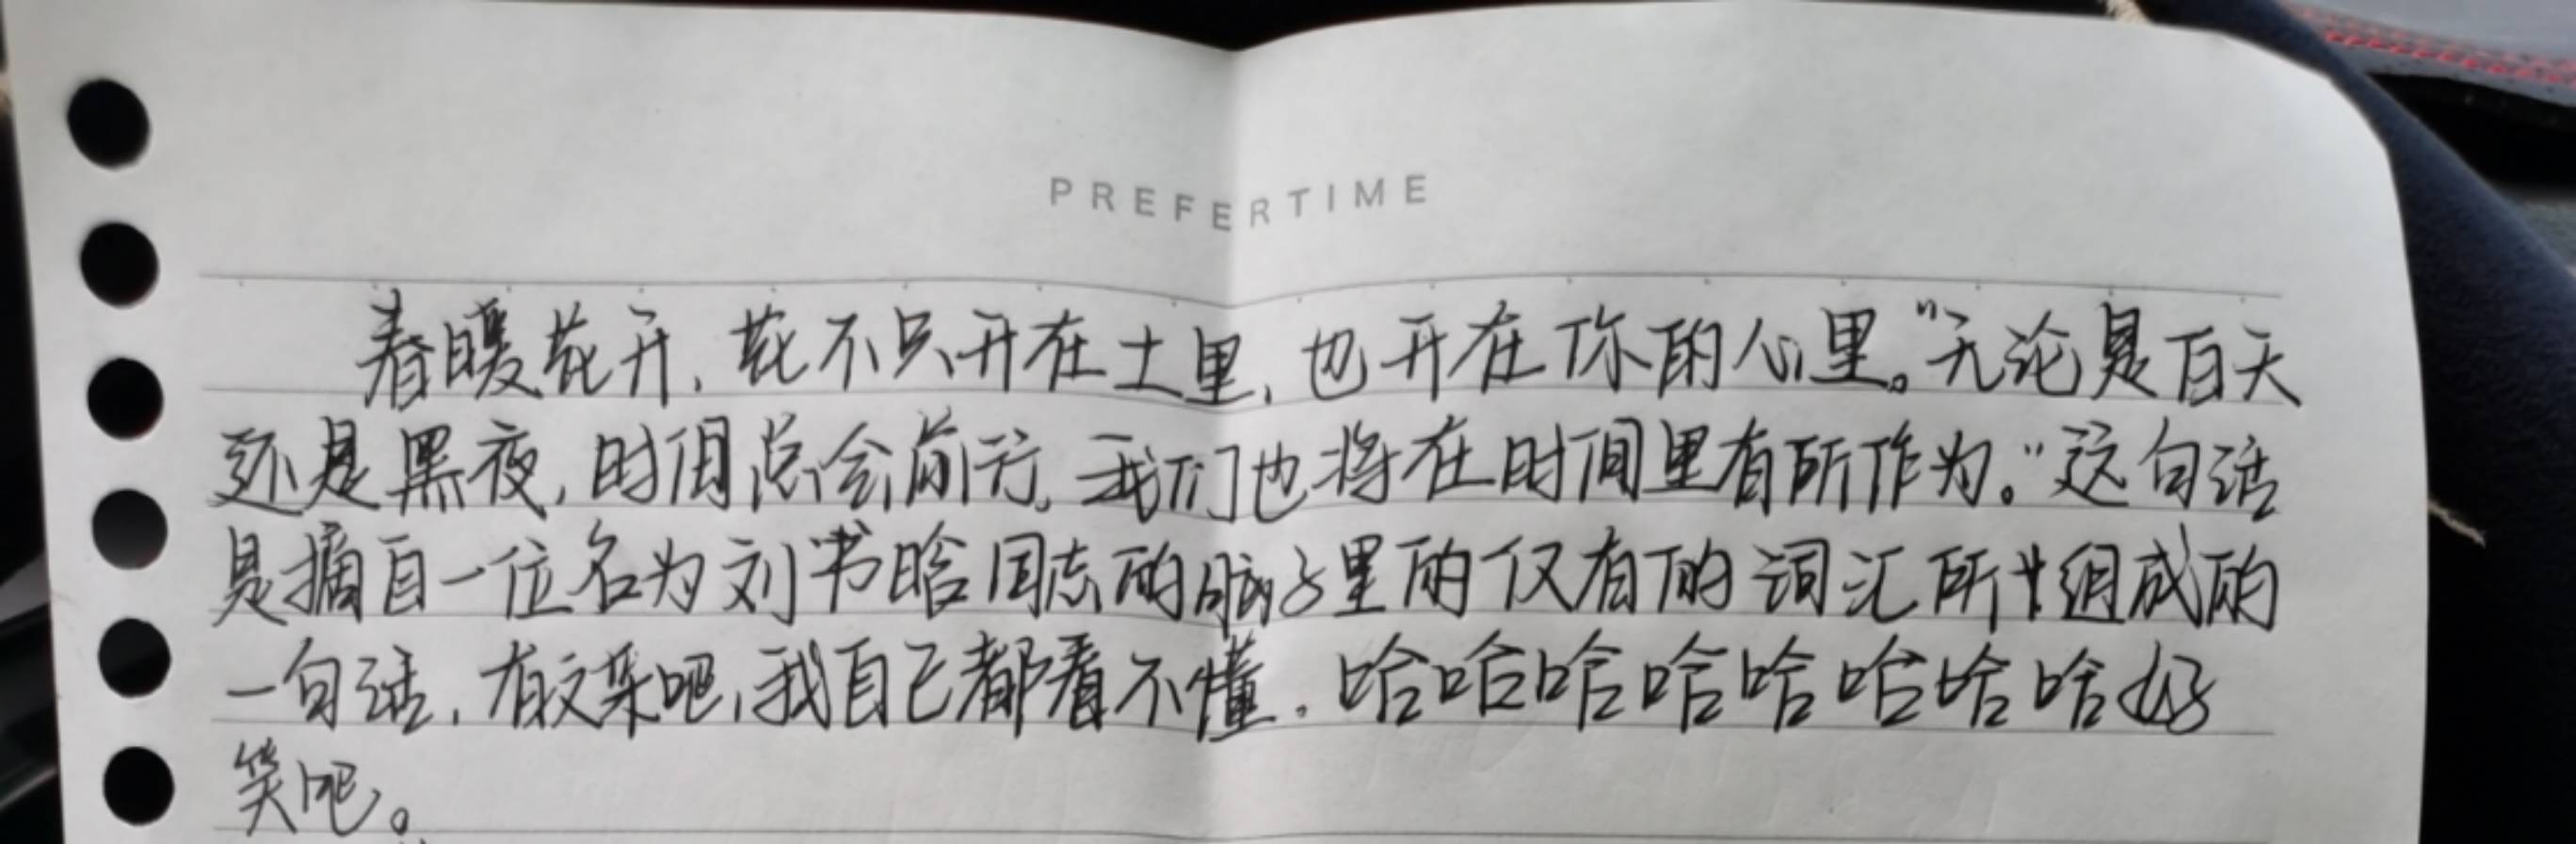 PREFERTIME
春暖花开，花不只开在土里，也开在你的心里。"无论是白天
还是黑夜，时间总会前行。我们也将在时间里有所作为。"这句话
是摘自一位名为刘书晗同志的脑子里的仅有的词汇所组成的
一句话，有文采吧，我自己都看不懂。哈哈哈哈哈哈哈哈好
笑吧。